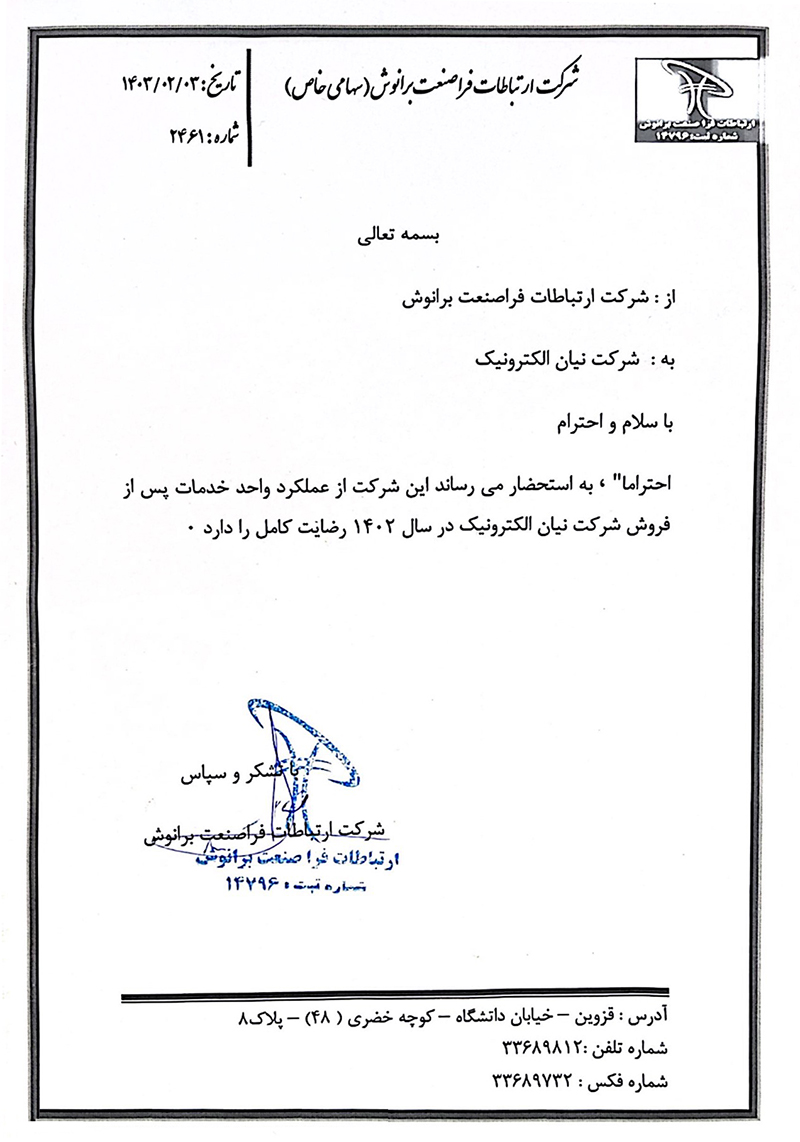 شرکت ارتباطات فراصنعت برانوش (سهامی خاص)
تاریخ: ۱۴۰۳/۰۲/۰۳
شماره: ۲۴۶۱
ارتباطات فرا صنعت برانوش
شماره ثبت: ۱۴۷۹۶
بسمه تعالی
از : شرکت ارتباطات فراصنعت برانوش
به : شرکت نیان الکترونیک
با سلام و احترام
احتراما" ، به استحضار می رساند این شرکت از عملکرد واحد خدمات پس از
فروش شرکت نیان الکترونیک در سال ۱۴۰۲ رضایت کامل را دارد ۰
با تشکر و سپاس
شرکت ارتباطات فراصنعت برانوش
ارتباطات فرا صنعت برانوش
شماره ثبت : ۱۴۷۹۶
آدرس : قزوین – خیابان دانشگاه – کوچه خضری ( ۴۸) – پلاک۸
شماره تلفن :۳۳۶۸۹۸۱۲
شماره فکس : ۳۳۶۸۹۷۳۲